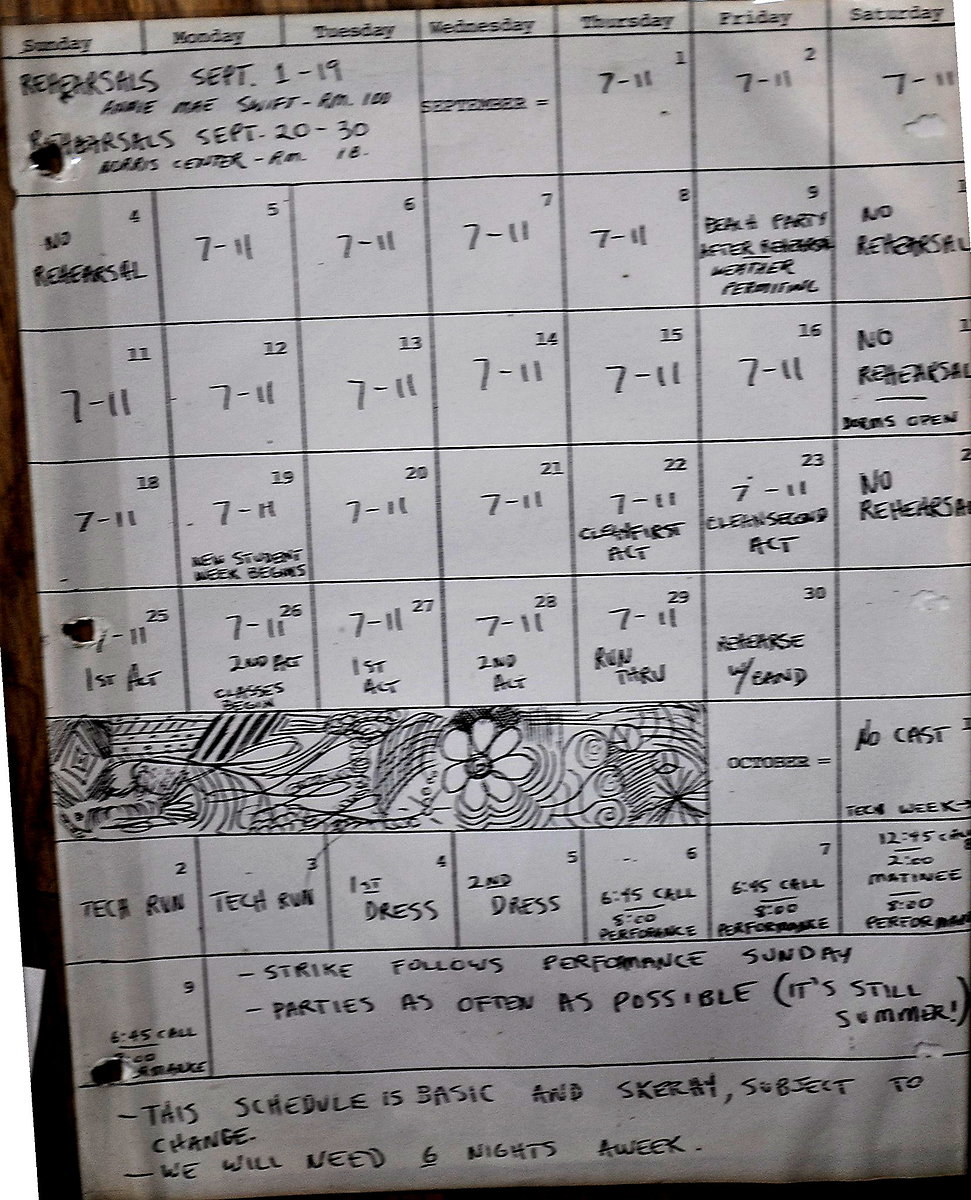 Sunday Monday Tuesday Wednesday Thursday Friday Saturday
REHEARSALS SEPT. 1-19
ANNIE MAE SWIFT - RM. 100
REHEARSALS SEPT. 20-30
NORRIS CENTER - RM. 1B.
SEPTEMBER =
1
7-11
2
7-11
7-11
4
NO
REHEARSAL
5
7-11
6
7-11
7
7-11
8
7-11
9
BEACH PARTY
AFTER REHEARSAL
WEATHER
PERMITING
NO
REHEARSAL
11
7-11
12
7-11
13
7-11
14
7-11
15
7-11
16
7-11
NO
REHEARSAL
DORMS OPEN
18
7-11
19
7-11
NEW STUDENT
WEEK BEGINS
20
7-11
21
7-11
22
7-11
CLEAN FIRST
ACT
23
7-11
CLEAN SECOND
ACT
NO
REHEARSA
25
7-11
1ST ACT
26
7-11
2ND ACT
CLASSES
BEGIN
27
7-11
1ST
ACT
28
7-11
2ND
ACT
29
7-11
RUN
THRU
30
REHEARSE
W/BAND
OCTOBER =
1
NO CAST
TECH WEEK→
2
TECH RUN
3
TECH RUN
4
1ST
DRESS
5
2ND
DRESS
6
6:45 CALL
8:00
PERFORANCE
7
6:45 CALL
8:00
PERFORMANCE
8
12:45 CAL
2:00
MATINEE
8:00
PERFORMAN
9
6:45 CALL
:00
RMANCE
- STRIKE FOLLOWS PERFOMANCE SUNDAY
- PARTIES AS OFTEN AS POSSIBLE (IT'S STILL
SUMMER!)
- THIS SCHEDULE IS BASIC AND SKERAY, SUBJECT TO
CHANGE.
- WE WILL NEED 6 NIGHTS AWEEK.